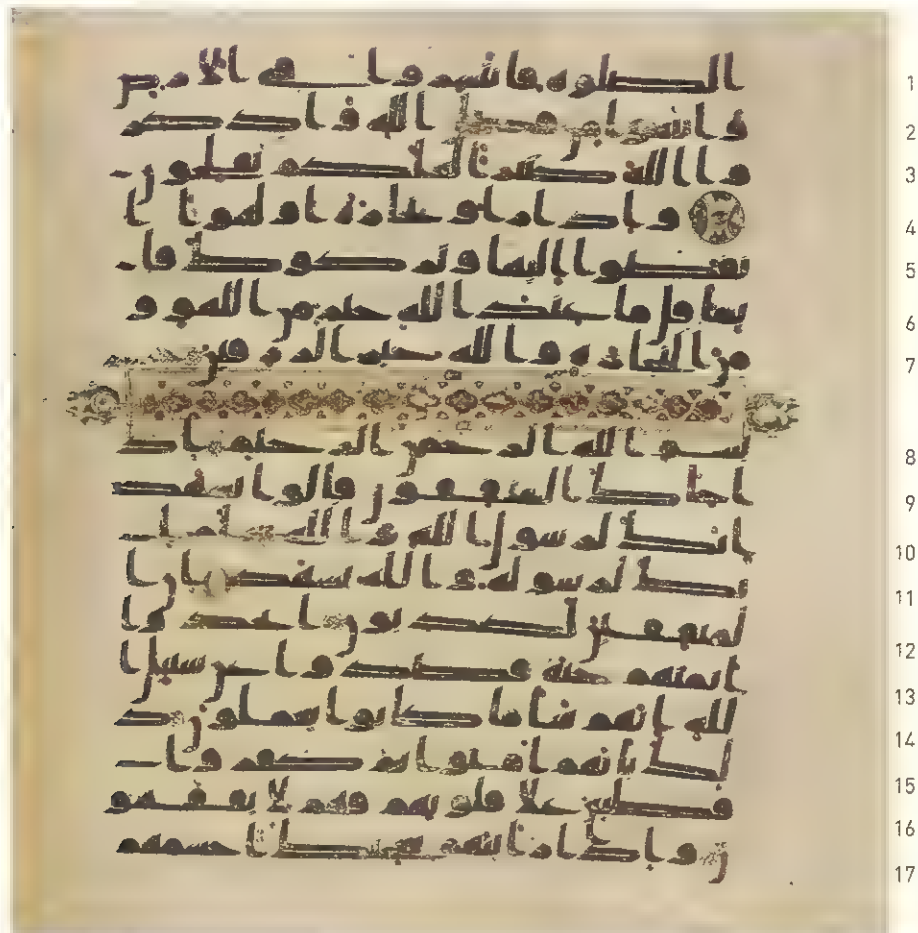 الصلوه فانتشروا في الارض 1
وابتغوا من فضل الله واذكر 2
وا الله كثيرا لعلكم تفلحون 3
واذا راوا تجره او لهوا ا 4
نفضوا اليها وتركوك قا 5
يما قل ما عند الله خير من اللهو و 6
من التجره والله خير الرزقين 7
بسم الله الرحمن الرحيم اذ 8
ا جاك المنفقون قالوا نشهد 9
انك لرسول الله والله يعلم ا 10
نك لرسوله والله يشهد ان ا 11
لمنفقين لكذبون اتخذوا 12
ايمنهم جنه فصدوا عن سبيل ا 13
لله انهم سا ما كانوا يعملون ذ 14
لك بانهم امنوا ثم كفروا 15
فطبع علي قلوبهم فهم لا يفقهو 16
ن واذا رايتهم تعجبك اجسمهم 17